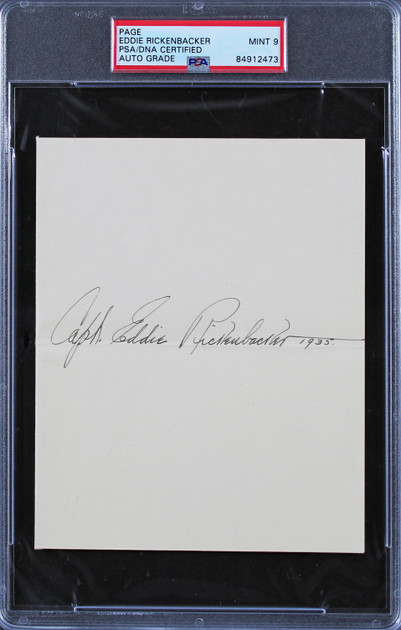 PAGE
EDDIE RICKENBACKER MINT 9
PSA/DNA CERTIFIED
AUTO GRADE PSA 84912473
Capt. Eddie Rickenbacker 1935